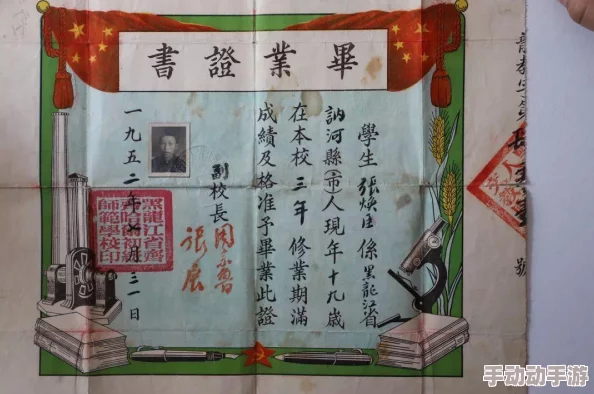 畢業證書
學生張煥臣係黑龍江省
訥河縣(市)人現年十九歲
在本校三年修業期滿
成績及格准予畢業此證
副校長
張展
一九五二年七月三一日
黑龍江省齊
齊哈爾初級
師範學校印
號
手动动手游